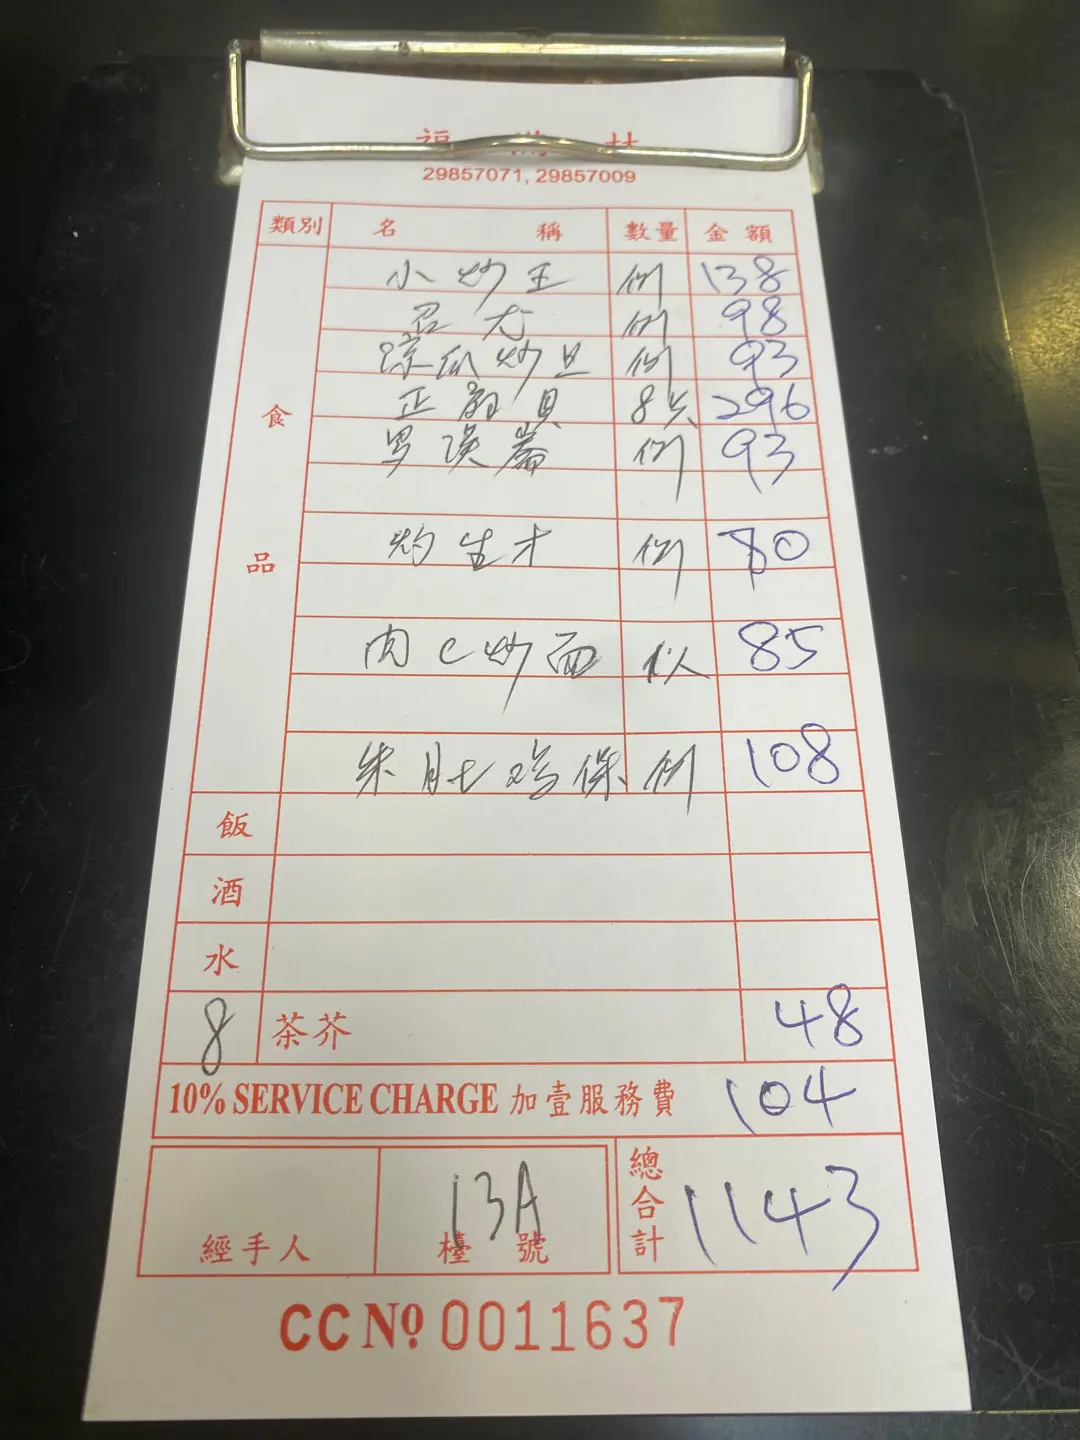 29857071, 29857009
類別 名稱 數量 金額
食品
小炒王 例 138
例 98
涼瓜炒旦 例 93
正 貝 8只 296
罗汉斋 例 93
灼生才 例 80
肉C炒面 例 85
朱肚 保 例 108
飯
酒
水
8 茶芥 48
10% SERVICE CHARGE 加壹服務費 104
經手人
13A 檯號
總合計 1143
CC No 0011637